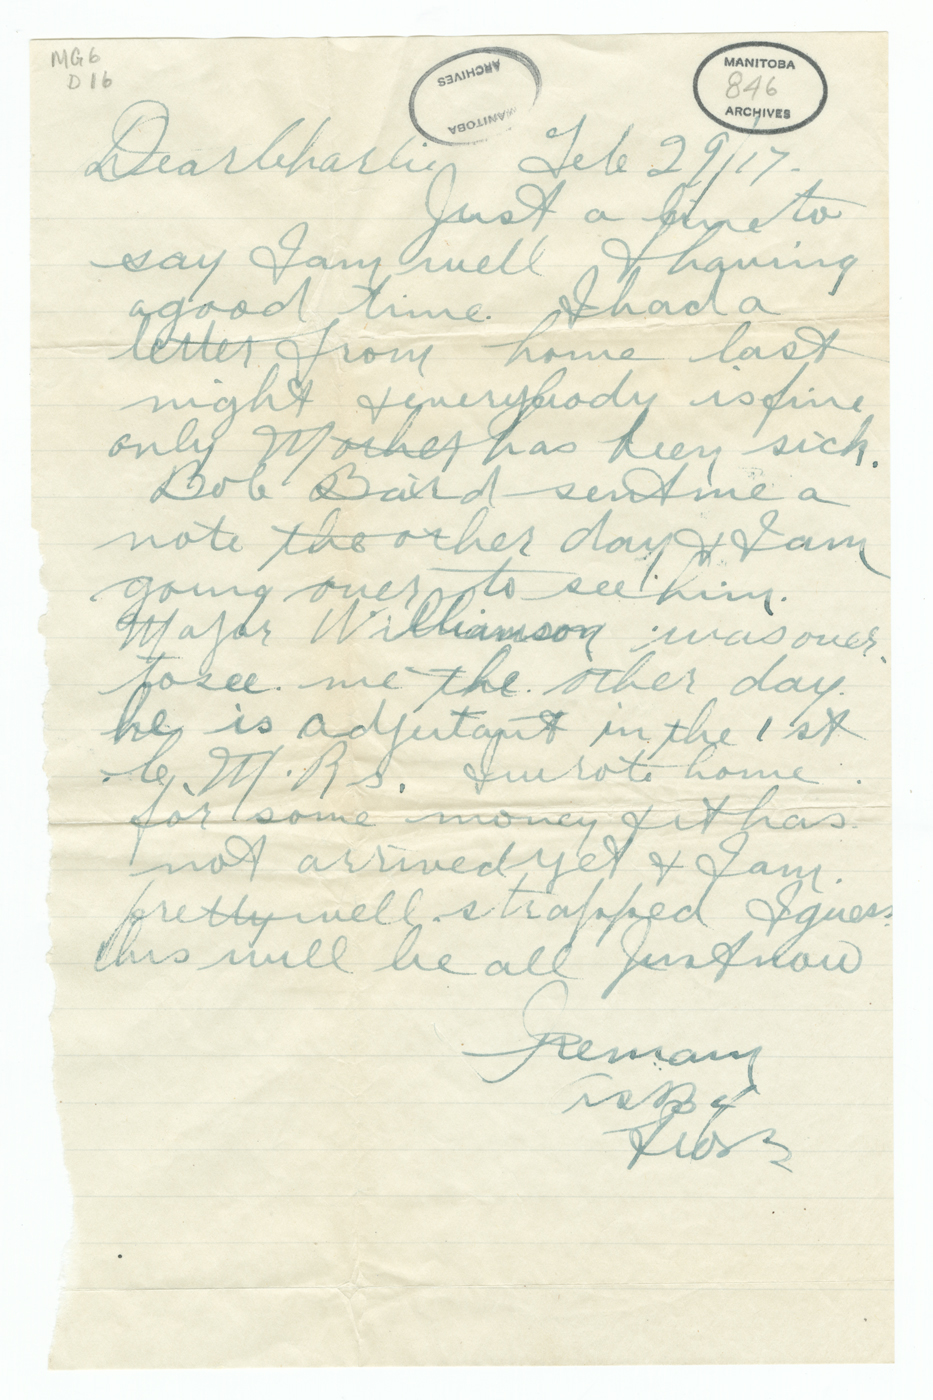 MG6
D16
ARCHIVES
MANITOBA
MANITOBA
846
ARCHIVES
Dear Charlie Feb 29/17.
Just a line to
say I am well & having
a good time. I had a
letter from home last
night & everybody is fine
only Mother has been sick.
Bob Baird sent me a
note the other day & I am
going over to see him.
Major Williamson was over
to see me the other day.
he is adjutant in the 1st
C. M. Rs. I wrote home
for some money & it has
not arrived yet & I am
pretty well strapped I guess
this will be all Just now
I Remain